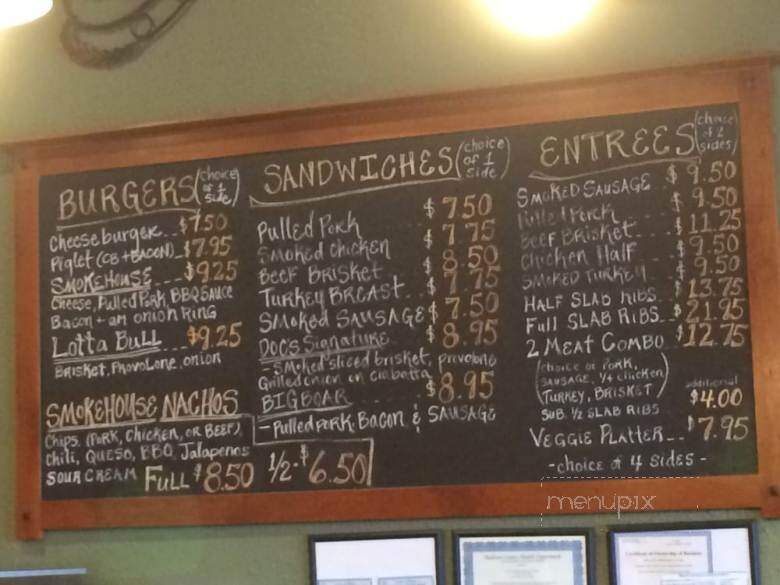 BURGERS (choice of 1 side)
Cheeseburger $7.50
Piglet (CB + BACON) $7.95
SMOKEHOUSE $9.25
Cheese, Pulled Pork, BBQ Sauce
Bacon + an onion Ring
Lotta BULL $9.25
BRISKET, Provolone, onion
SMOKEHOUSE NACHOS
Chips, (PORK, Chicken, OR BEEF),
Chili, QUESO, BBQ, Jalapenos
SOUR CREAM Full $8.50 1/2- $6.50
SANDWICHES (choice of 1 side)
Pulled Pork $7.50
Smoked Chicken $7.75
Beef BRISKET $8.50
Turkey BREAST $7.75
Smoked SAUSAGE $7.50
DOC'S Signature $8.95
-Smoked sliced brisket, provolone
Grilled onion on ciabatta
BIG BOAR $8.95
-Pulled Pork, Bacon & SAUSAGE
ENTREES (choice of 2 sides)
SMOKED SAUSAGE $9.50
Pulled Pork $9.50
BEEF BRISKET $11.25
Chicken Half $9.50
SMOKED TURKEY $9.50
HALF SLAB RIBS $13.75
Full SLAB RIBS $21.95
2 MEAT COMBO $12.75
(choice of PORK,
SAUSAGE, 1/4 chicken,
TURKEY, BRISKET)
SUB. 1/2 SLAB RIBS additional $4.00
VEGGIE PLATTER $7.95
-choice of 4 SIDES-
menupix